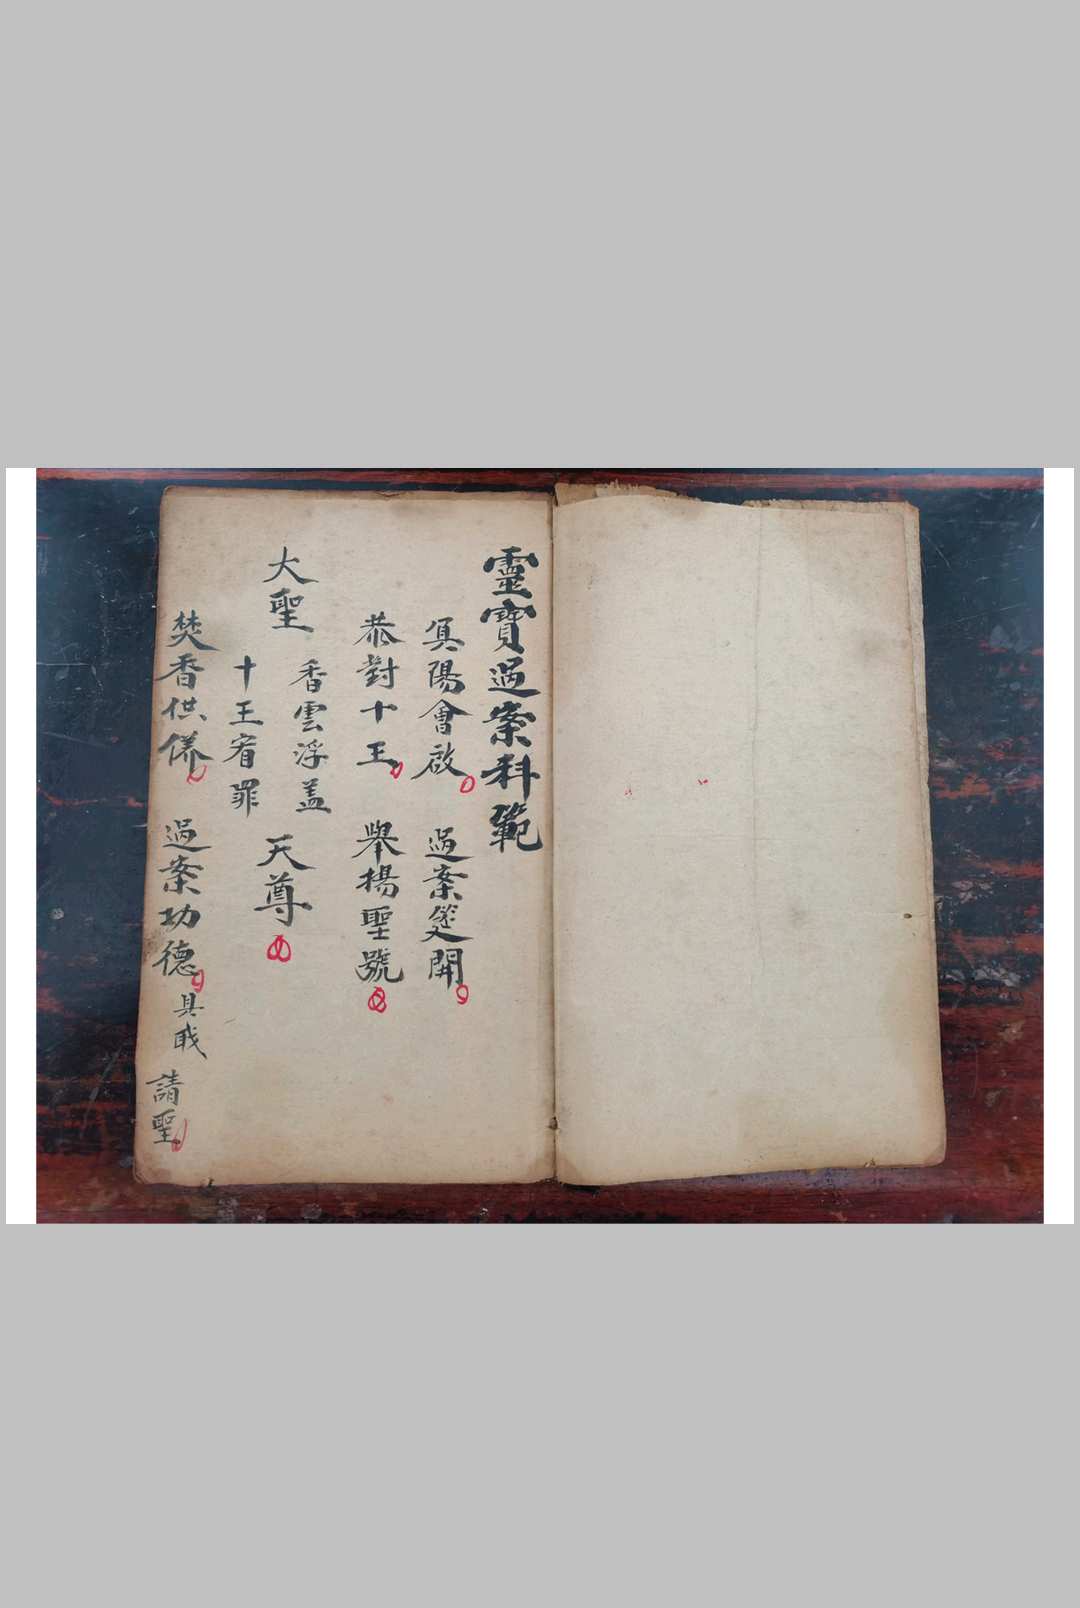 靈寳過案科範
冥陽會啟 過案筵開
恭對十王 舉揚聖號
大聖 香雲浮盖 十王宥罪 天尊
焚香供養 過案功德 具戝 請聖